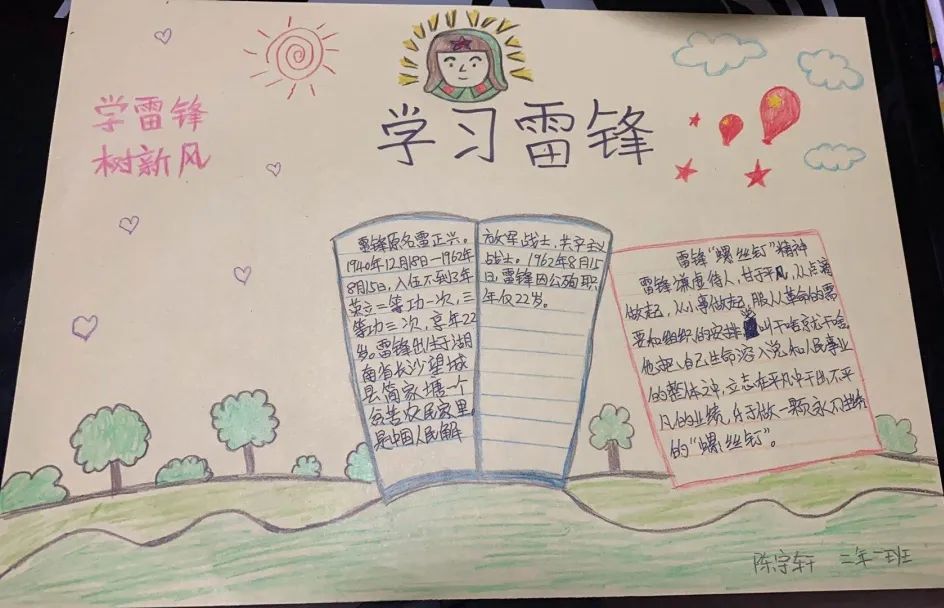 学习雷锋
学雷锋
树新风
雷锋原名雷正兴。
1940年12月18日—1962年
8月15日,入伍不到3年
荣立二等功一次,三
等功三次,享年22
岁。雷锋出生于湖
南省长沙望城
县简家塘一个
贫苦农民家里。
是中国人民解
放军战士,共产主义
战士。1962年8月15
日,雷锋因公殉职
年仅22岁。
雷锋“螺丝钉”精神
雷锋谦虚待人,甘于平凡,从点滴
做起,从小事做起,服从革命的需
要和组织的安排 叫干啥就干啥,
他把自己生命溶入党和人民事业
的整体之中,立志在平凡中干出不平
凡的业绩,甘于做一颗永不生锈
的“螺丝钉”。
陈宇轩 二年二班